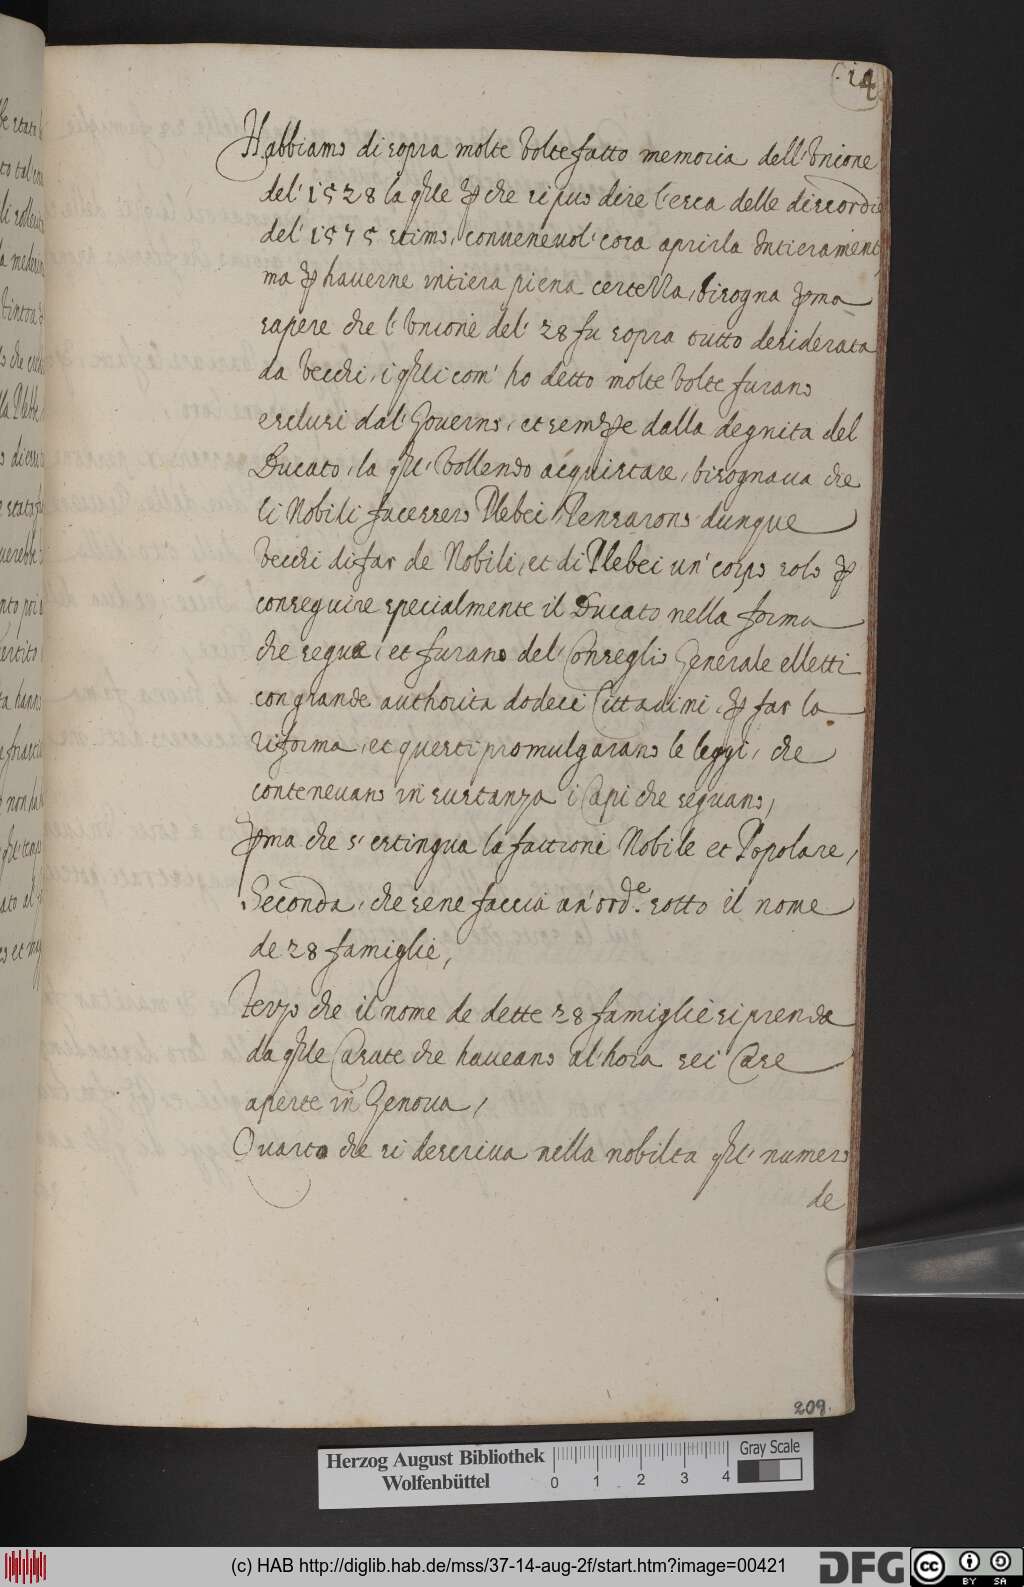 14
Habbiamo di sopra molte volte fatto memoria dell'Unione
del' 1528 la qle p che si puo dire l'esca delle discordie
del' 1575 stimo, convenevol' cosa aprirla Intierament
ma p haverne intiera piena certezza, bisogna pma
sapere che l'Unione del' 28 fu sopra tutto desiderata
da vecchi, i qli com' ho detto molte volte furano
esclusi dal' Governo, et sempe dalla degnita del
Ducato, la ql' vollendo acquistare, bisognava che
li Nobili facessero Plebei, Pensarono dunque
vecchi di far de Nobili, et di Plebei un' corpo solo p
conseguire specialmente il Ducato nella forma
che segue, et furano del' Conseglio Generale elletti
con grande authorita dodeci Cittadini, p far la
riforma, et questi promulgarano le leggi, che
contenevano in sustanza i Capi che seguano,
pma che s'estingua la fattione Nobile et Popolare,
Seconda, che se ne faccia un' orde. sotto il nome
de 28 famiglie,
Terzo che il nome de dette 28 famiglie si prenda
da qlle Casate che haveano al'hora sei Case
aperte in Genova,
Quarto che si descriva nella nobilta ql' numero
de
209.
Herzog August Bibliothek
Wolfenbüttel
0 1 2 3 4
Gray Scale
(c) HAB http://diglib.hab.de/mss/37-14-aug-2f/start.htm?image=00421
DFG
cc BY SA